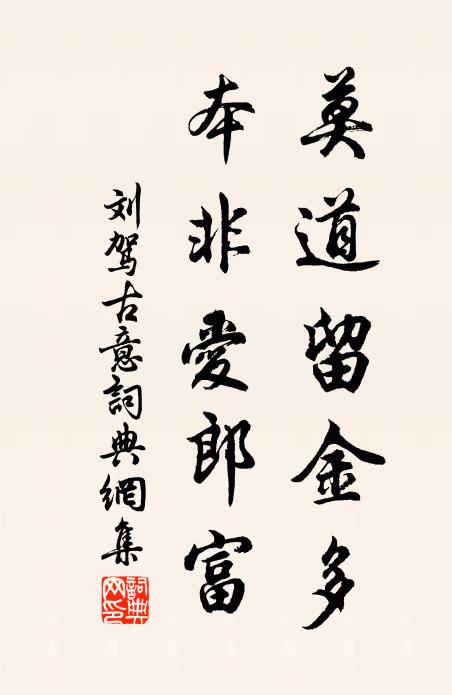 莫道留金多
本非愛郎富
刘駕古意詞典網集
詞典网印